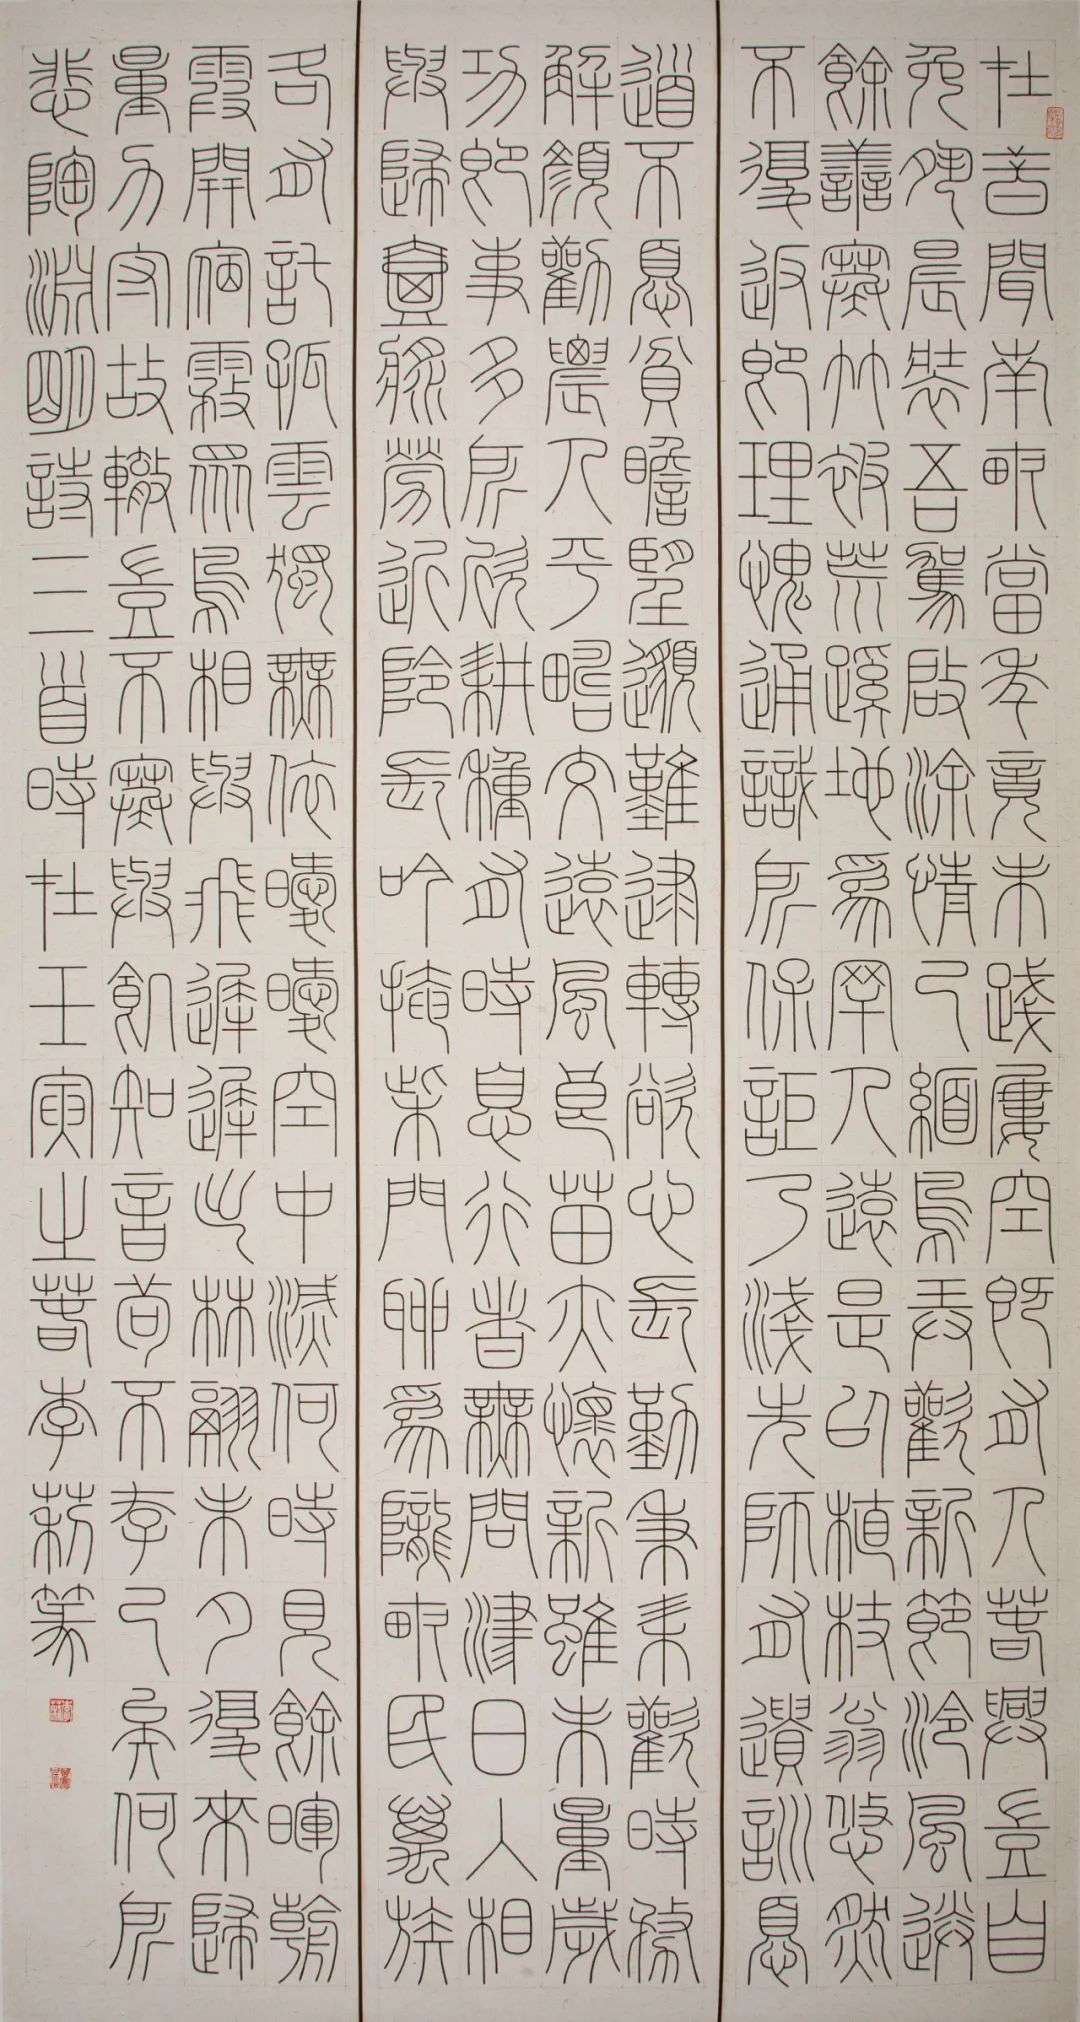 在昔聞南畝當年竟未踐屢空既有人春興豈自
免夙晨裝吾駕啟涂情已緬鳥弄歡新節泠風送
餘善寒竹被荒蹊地為罕人遠是以植杖翁悠然
不復返即理愧通識所保詎乃淺先師有遺訓憂
道不憂貧瞻望邈難逮轉欲心長勤秉耒歡時務
解顏勸農人平疇交遠風良苗亦懷新雖未量歲
功即事多所欣耕種有時息行者無問津日入相
與歸壺漿勞近鄰長吟掩柴門聊為隴畝民萬族
各有託孤雲獨無依曖曖空中滅何時見餘暉朝
霞開宿霧眾鳥相與飛遲遲出林翮未夕復來歸
量力守故轍豈不寒與飢知音苟不存已矣何所
悲陶淵明詩三首時在壬寅之春李篆